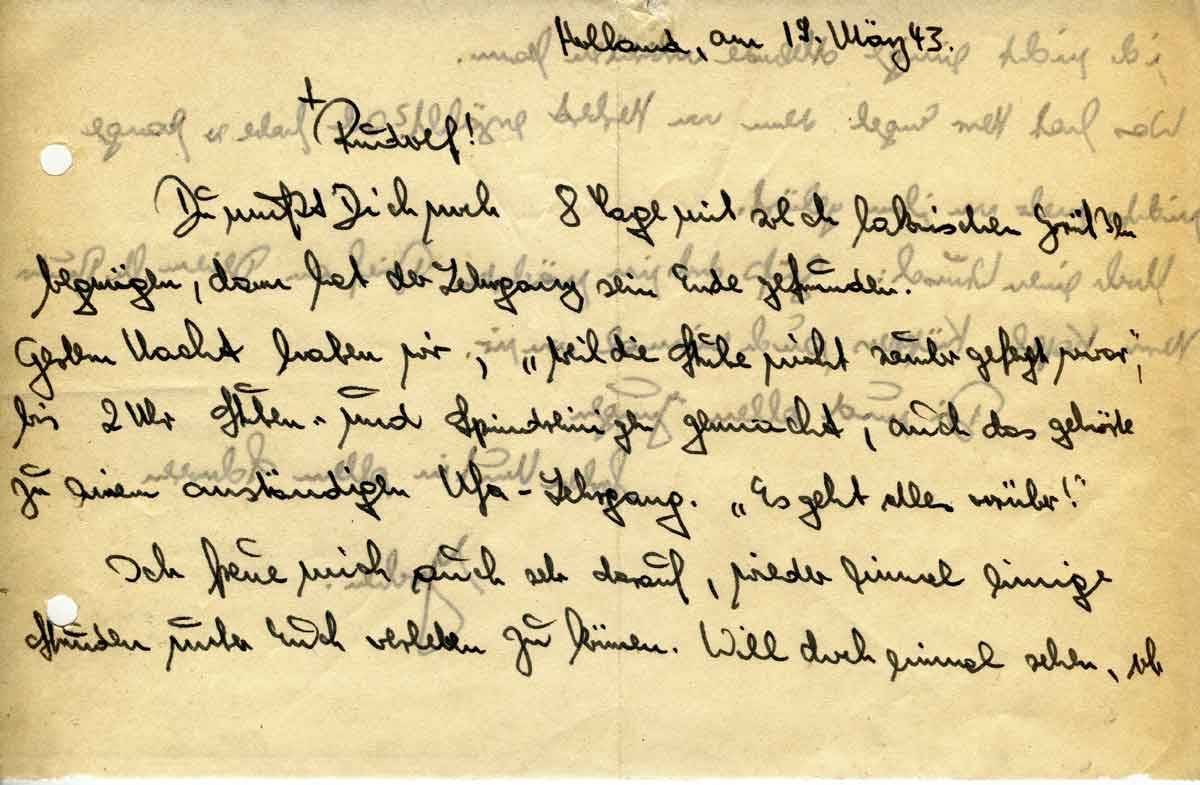 Holland, am 19. März 43.
Rudolf!
Du mußt Dich noch 8 Tage mit solch lakonischen Grüßen
begnügen, dann hat der Lehrgang sein Ende gefunden.
Gestern Nacht haben wir, „weil die Stube nicht sauber gefegt war",
bis 2 Uhr Stuben- und Spindreinigen gemacht, auch das gehörte
zu einem anständigen Ufa-Lehrgang. „Es geht alles vorüber!"
Ich freue mich auch sehr darauf, wieder einmal einige
Stunden unter Euch verleben zu können. Will doch einmal sehen, ob